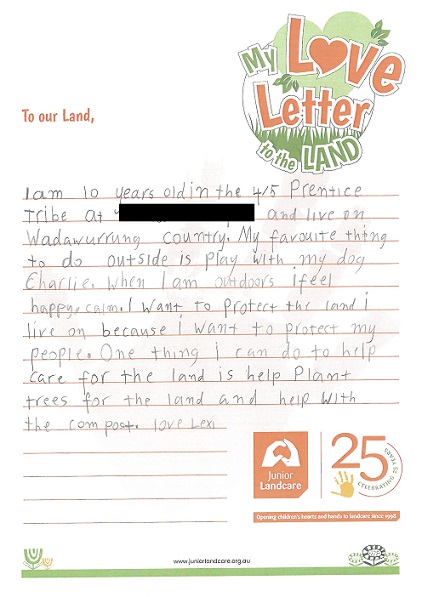 My Love
Letter
to the LAND
To our Land,
I am 10 years old in the 4/5 Prentice
Tribe at and live on
Wadawurrung country. My favouite thing
to do outside is play with my dog
Charlie. When I am outdoors ifeel
happy, calm. I want to protect the land i
live on because I want to protect my
people. One thing i can do to help
care for the land is help Plant
trees for the land and help with
the compost. love Lexi
Junior
Landcare
25 YEARS
CELEBRATING
Opening children's hearts and hands to landcare since 1998
www.juniorlandcare.org.au